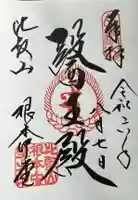 奉拝
令和二年
八月七日
醫王殿
比叡山
根本中堂